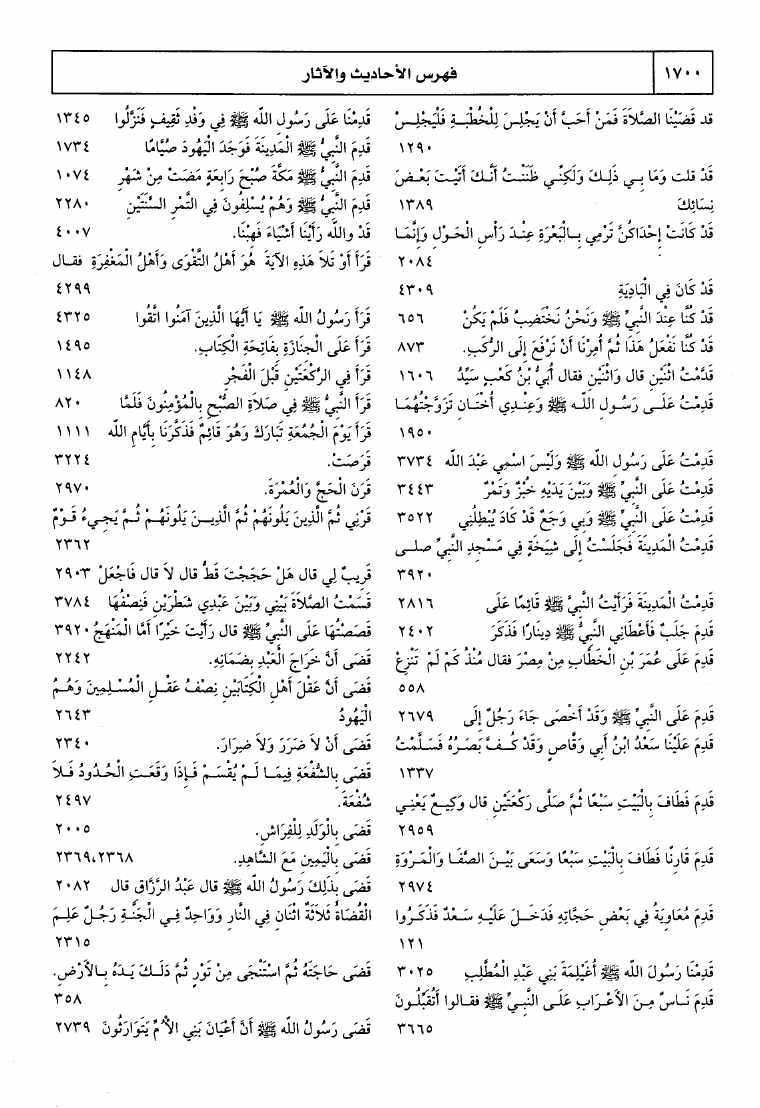 ١٧٠٠
فهرس الأحاديث والآثار
قد قَضَيْنَا الصَّلاَةَ فَمَنْ أَحَبَّ أَنْ يَجْلِسَ لِلْخُطْبَةِ فَلْيَجْلِسْ
١٢٩٠
قَدْ قلت وَمَا بِي ذَلِكَ وَلَكِنِّي ظَنَنْتُ أَنَّكَ أَتَيْتَ بَعْضَ
نِسَائِكَ ١٣٨٩
قَدْ كَانَتْ إِحْدَاكُنَّ تَرْمِي بِالْبَعْرَةِ عِنْدَ رَأْسِ الْحَوْلِ وَإِنَّمَا
٢٠٨٤
قَدْ كَانَ فِي الْبَادِيَةِ ٤٣٠٩
قَدْ كُنَّا عِنْدَ النَّبِيِّ ﷺ وَنَحْنُ نَخْتَضِبُ فَلَمْ يَكُنْ ٦٥٦
قَدْ كُنَّا نَفْعَلُ هَذَا ثُمَّ أُمِرْنَا أَنْ نَرْفَعَ إِلَى الرُّكَبِ. ٨٧٣
قَدَّمْتُ اثْنَيْنِ قال وَاثْنَيْنِ فقال أُبَيُّ بْنُ كَعْبٍ سَيِّدُ ١٦٠٦
قَدِمْتُ عَلَى رَسُولِ اللَّهِ ﷺ وَعِنْدِي أُخْتَانِ تَزَوَّجْتُهُمَا
١٩٥٠
قَدِمْتُ عَلَى رَسُولِ اللَّهِ ﷺ وَلَيْسَ اسْمِي عَبْدَ اللَّه ٣٧٣٤
قَدِمْتُ عَلَى النَّبِيِّ ﷺ وَبَيْنَ يَدَيْهِ خُبْزٌ وَتَمْرٌ ٣٤٤٣
قَدِمْتُ عَلَى النَّبِيِّ ﷺ وَبِي وَجَعٌ قَدْ كَادَ يُبْطِلُنِي ٣٥٢٢
قَدِمْتُ الْمَدِينَةَ فَجَلَسْتُ إِلَى شِيَخَةٍ فِي مَسْجِدِ النَّبِيِّ صلى
٣٩٢٠
قَدِمْتُ الْمَدِينَةَ فَرَأَيْتُ النَّبِيَّ ﷺ قَائِمًا عَلَى ٢٨١٦
قَدِمَ جَلَبٌ فَأَعْطَانِي النَّبِيُّ ﷺ دِينَارًا فَذَكَرَ ٢٤٠٢
قَدِمَ عَلَى عُمَرَ بْنِ الْخَطَّابِ مِنْ مِصْرَ فقال مُنْذُ كَمْ لَمْ تَنْزِعْ
٥٥٨
قَدِمَ عَلَى النَّبِيِّ ﷺ وَقَدْ أَخْصَى جَاءَ رَجُلٌ إِلَى ٢٦٧٩
قَدِمَ عَلَيْنَا سَعْدُ ابْنُ أَبِي وَقَّاصٍ وَقَدْ كُفَّ بَصَرُهُ فَسَلَّمْتُ
١٣٣٧
قَدِمَ فَطَافَ بِالْبَيْتِ سَبْعًا ثُمَّ صَلَّى رَكْعَتَيْنِ قال وَكِيعٌ يَعْنِي
٢٩٥٩
قَدِمَ قَارِنًا فَطَافَ بِالْبَيْتِ سَبْعًا وَسَعَى بَيْنَ الصَّفَا وَالْمَرْوَةِ
٢٩٧٤
قَدِمَ مُعَاوِيَةُ فِي بَعْضِ حَجَّاتِهِ فَدَخَلَ عَلَيْهِ سَعْدٌ فَذَكَرُوا
١٢١
قَدِمْنَا رَسُولَ اللَّه ﷺ أُغَيْلِمَةَ بَنِي عَبْدِ الْمُطَّلِبِ ٣٠٢٥
قَدِمَ نَاسٌ مِنَ الأَعْرَابِ عَلَى النَّبِيِّ ﷺ فقالوا أَتُقَبِّلُونَ
٣٦٦٥
قَدِمْنَا عَلَى رَسُولِ اللَّه ﷺ فِي وَفْدِ ثَقِيفٍ فَنَزَّلُوا ١٣٤٥
قَدِمَ النَّبِيُّ ﷺ الْمَدِينَةَ فَوَجَدَ الْيَهُودَ صُيَّامًا ١٧٣٤
قَدِمَ النَّبِيُّ ﷺ مَكَّةَ صُبْحَ رَابِعَةٍ مَضَتْ مِنْ شَهْرِ ١٠٧٤
قَدِمَ النَّبِيُّ ﷺ وَهُمْ يُسْلِفُونَ فِي التَّمْرِ السَّنَتَيْنِ ٢٢٨٠
قَدْ واللَّه رَأَيْنَا أَشْيَاءَ فَهِبْنَا. ٤٠٠٧
قَرَأَ أَوْ تَلاَ هَذِهِ الآيَةَ هُوَ أَهْلُ التَّقْوَى وَأَهْلُ الْمَغْفِرَةِ فقال
٤٢٩٩
قَرَأَ رَسُولُ اللَّه ﷺ يَا أَيُّهَا الَّذِينَ آمَنُوا اتَّقُوا ٤٣٢٥
قَرَأَ عَلَى الْجِنَازَةِ بِفَاتِحَةِ الْكِتَابِ. ١٤٩٥
قَرَأَ فِي الرَّكْعَتَيْنِ قَبْلَ الْفَجْرِ ١١٤٨
قَرَأَ النَّبِيُّ ﷺ فِي صَلاَةِ الصُّبْحِ بِالْمُؤْمِنُونَ فَلَمَّا ٨٢٠
قَرَأَ يَوْمَ الْجُمُعَةِ تَبَارَكَ وَهُوَ قَائِمٌ فَذَكَّرَنَا بِأَيَّامِ اللَّه ١١١١
قَرَصَتْ. ٣٢٢٤
قَرَنَ الْحَجَّ وَالْعُمْرَةَ. ٢٩٧٠
قَرْنِي ثُمَّ الَّذِينَ يَلُونَهُمْ ثُمَّ الَّذِينَ يَلُونَهُمْ ثُمَّ يَجِيءُ قَوْمٌ
٢٣٦٢
قَرِيبٌ لِي قال هَلْ حَجَجْتَ قَطُّ قال لاَ قال فَاجْعَلْ ٢٩٠٣
قَسَمْتُ الصَّلاَةَ بَيْنِي وَبَيْنَ عَبْدِي شَطْرَيْنِ فَنِصْفُهَا ٣٧٨٤
قَصَصْتُهَا عَلَى النَّبِيِّ ﷺ قال رَأَيْتَ خَيْرًا أَمَّا الْمَنْهَجُ ٣٩٢٠
قَضَى أَنَّ خَرَاجَ الْعَبْدِ بِضَمَانِهِ. ٢٢٤٢
قَضَى أَنَّ عَقْلَ أَهْلِ الْكِتَابَيْنِ نِصْفُ عَقْلِ الْمُسْلِمِينَ وَهُمُ
الْيَهُودُ ٢٦٤٣
قَضَى أَنْ لاَ ضَرَرَ وَلاَ ضِرَارَ. ٢٣٤٠
قَضَى بِالشُّفْعَةِ فِيمَا لَمْ يُقْسَمْ فَإِذَا وَقَعَتِ الْحُدُودُ فَلاَ
شُفْعَةَ. ٢٤٩٧
قَضَى بِالْوَلَدِ لِلْفِرَاشِ. ٢٠٠٥
قَضَى بِالْيَمِينِ مَعَ الشَّاهِدِ. ٢٣٦٨، ٢٣٦٩
قَضَى بِذَلِكَ رَسُولُ اللَّه ﷺ قال عَبْدُ الرَّزَّاقِ قال ٢٠٨٢
الْقُضَاةُ ثَلاَثَةٌ اثْنَانِ فِي النَّارِ وَوَاحِدٌ فِي الْجَنَّةِ رَجُلٌ عَلِمَ
٢٣١٥
قَضَى حَاجَتَهُ ثُمَّ اسْتَنْجَى مِنْ تَوْرٍ ثُمَّ دَلَكَ يَدَهُ بِالأَرْضِ.
٣٥٨
قَضَى رَسُولُ اللَّه ﷺ أَنَّ أَعْيَانَ بَنِي الأُمِّ يَتَوَارَثُونَ ٢٧٣٩